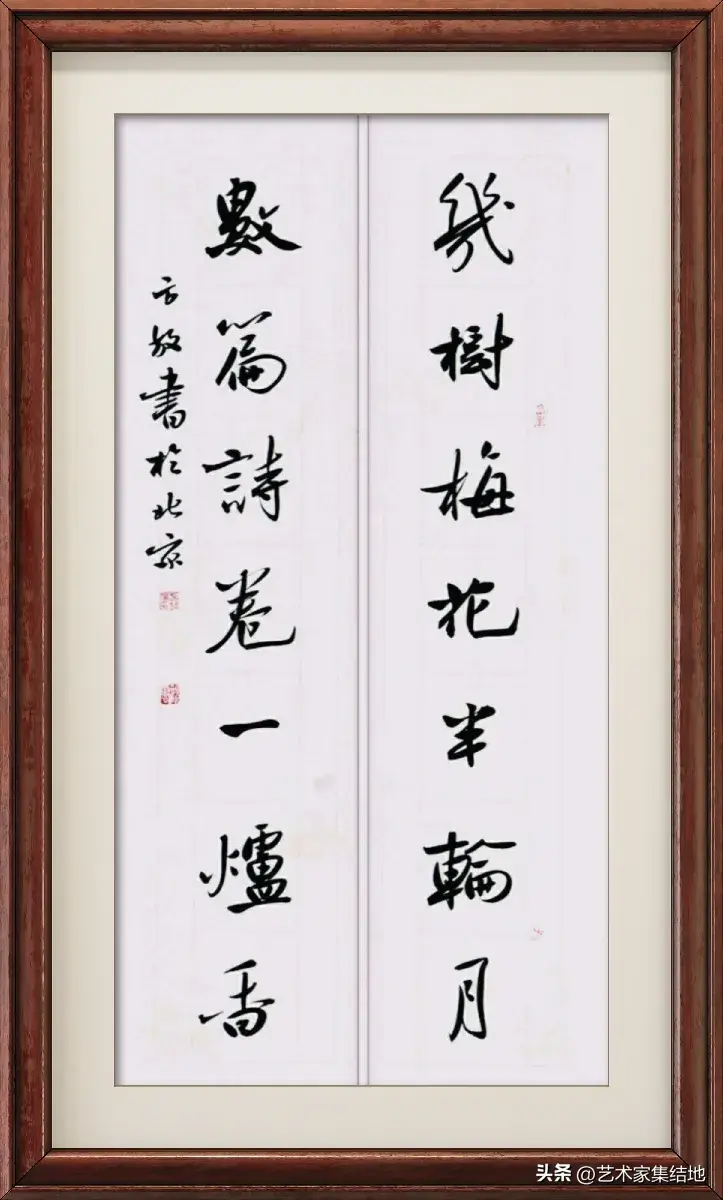 幾樹梅花半輪月
數篇詩卷一爐香
方書於北京
头条 @艺术家集结地